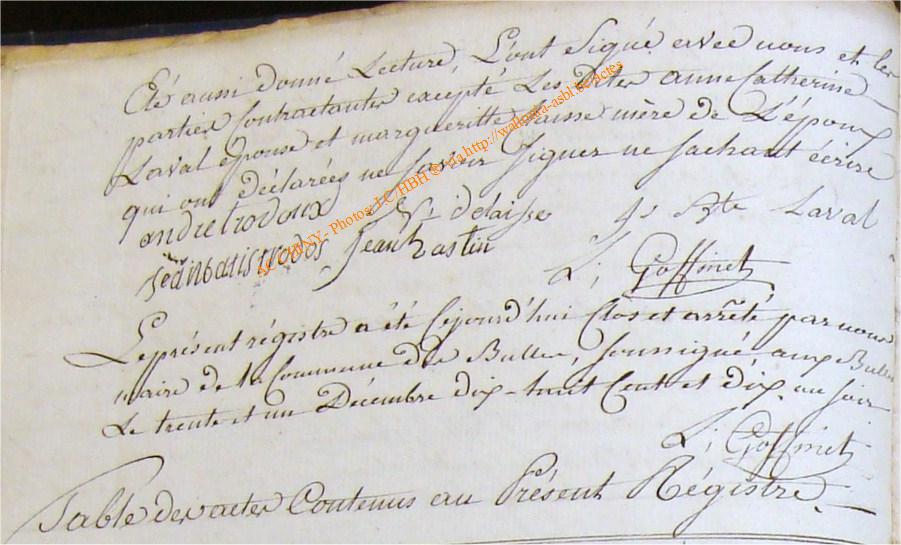 Eté aussi donné Lecture, L'ont Signé avec nous et les
parties Contractantes excepté Les Dites anne Catherine
Laval épouse et margueritte Jaisse mère de L'époux
qui ont déclarées ne savoir Signer ne sachant écrire
andre trodoux delaisse Js Bte Laval
jean batis trodos Jean hastin
L; Goffinet
Le présent régistre a été Cejourd'hui Clos et arrêté par nous
maire de la Commune des Bulles, soussigné, aux Bulles
Le trente et un Décembre dix-huit Cent et dix, au soir
L; Goffinet
Table des actes Contenus au Présent Régistre.
Photos J-C HBH ® via http://wallonia-asbl.be/actes